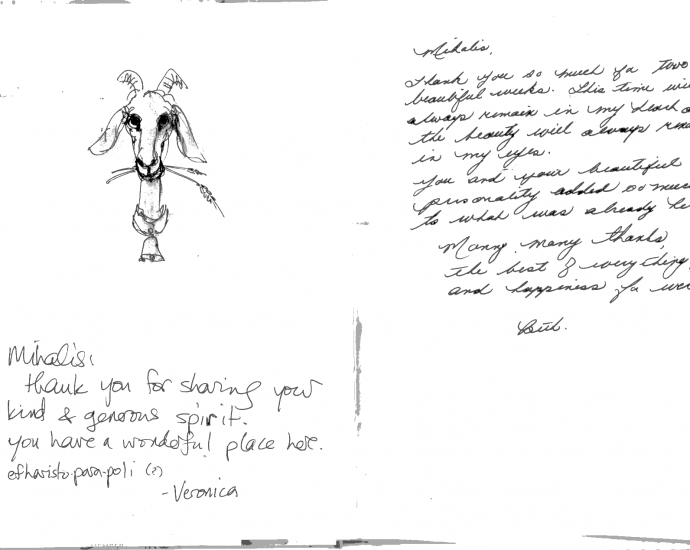 Mihalis,
thank you for sharing your
kind & generous spirit.
you have a wonderful place here.
efharisto para poli (?)
-Veronica
Mihalis,
Thank you so much for two
beautiful weeks. This time will
always remain in my heart
the beauty will always
in my eyes.
You and your beautiful
personality added so much
to what was already
Many, many thanks,
the best of everything,
and happiness for
Beth.